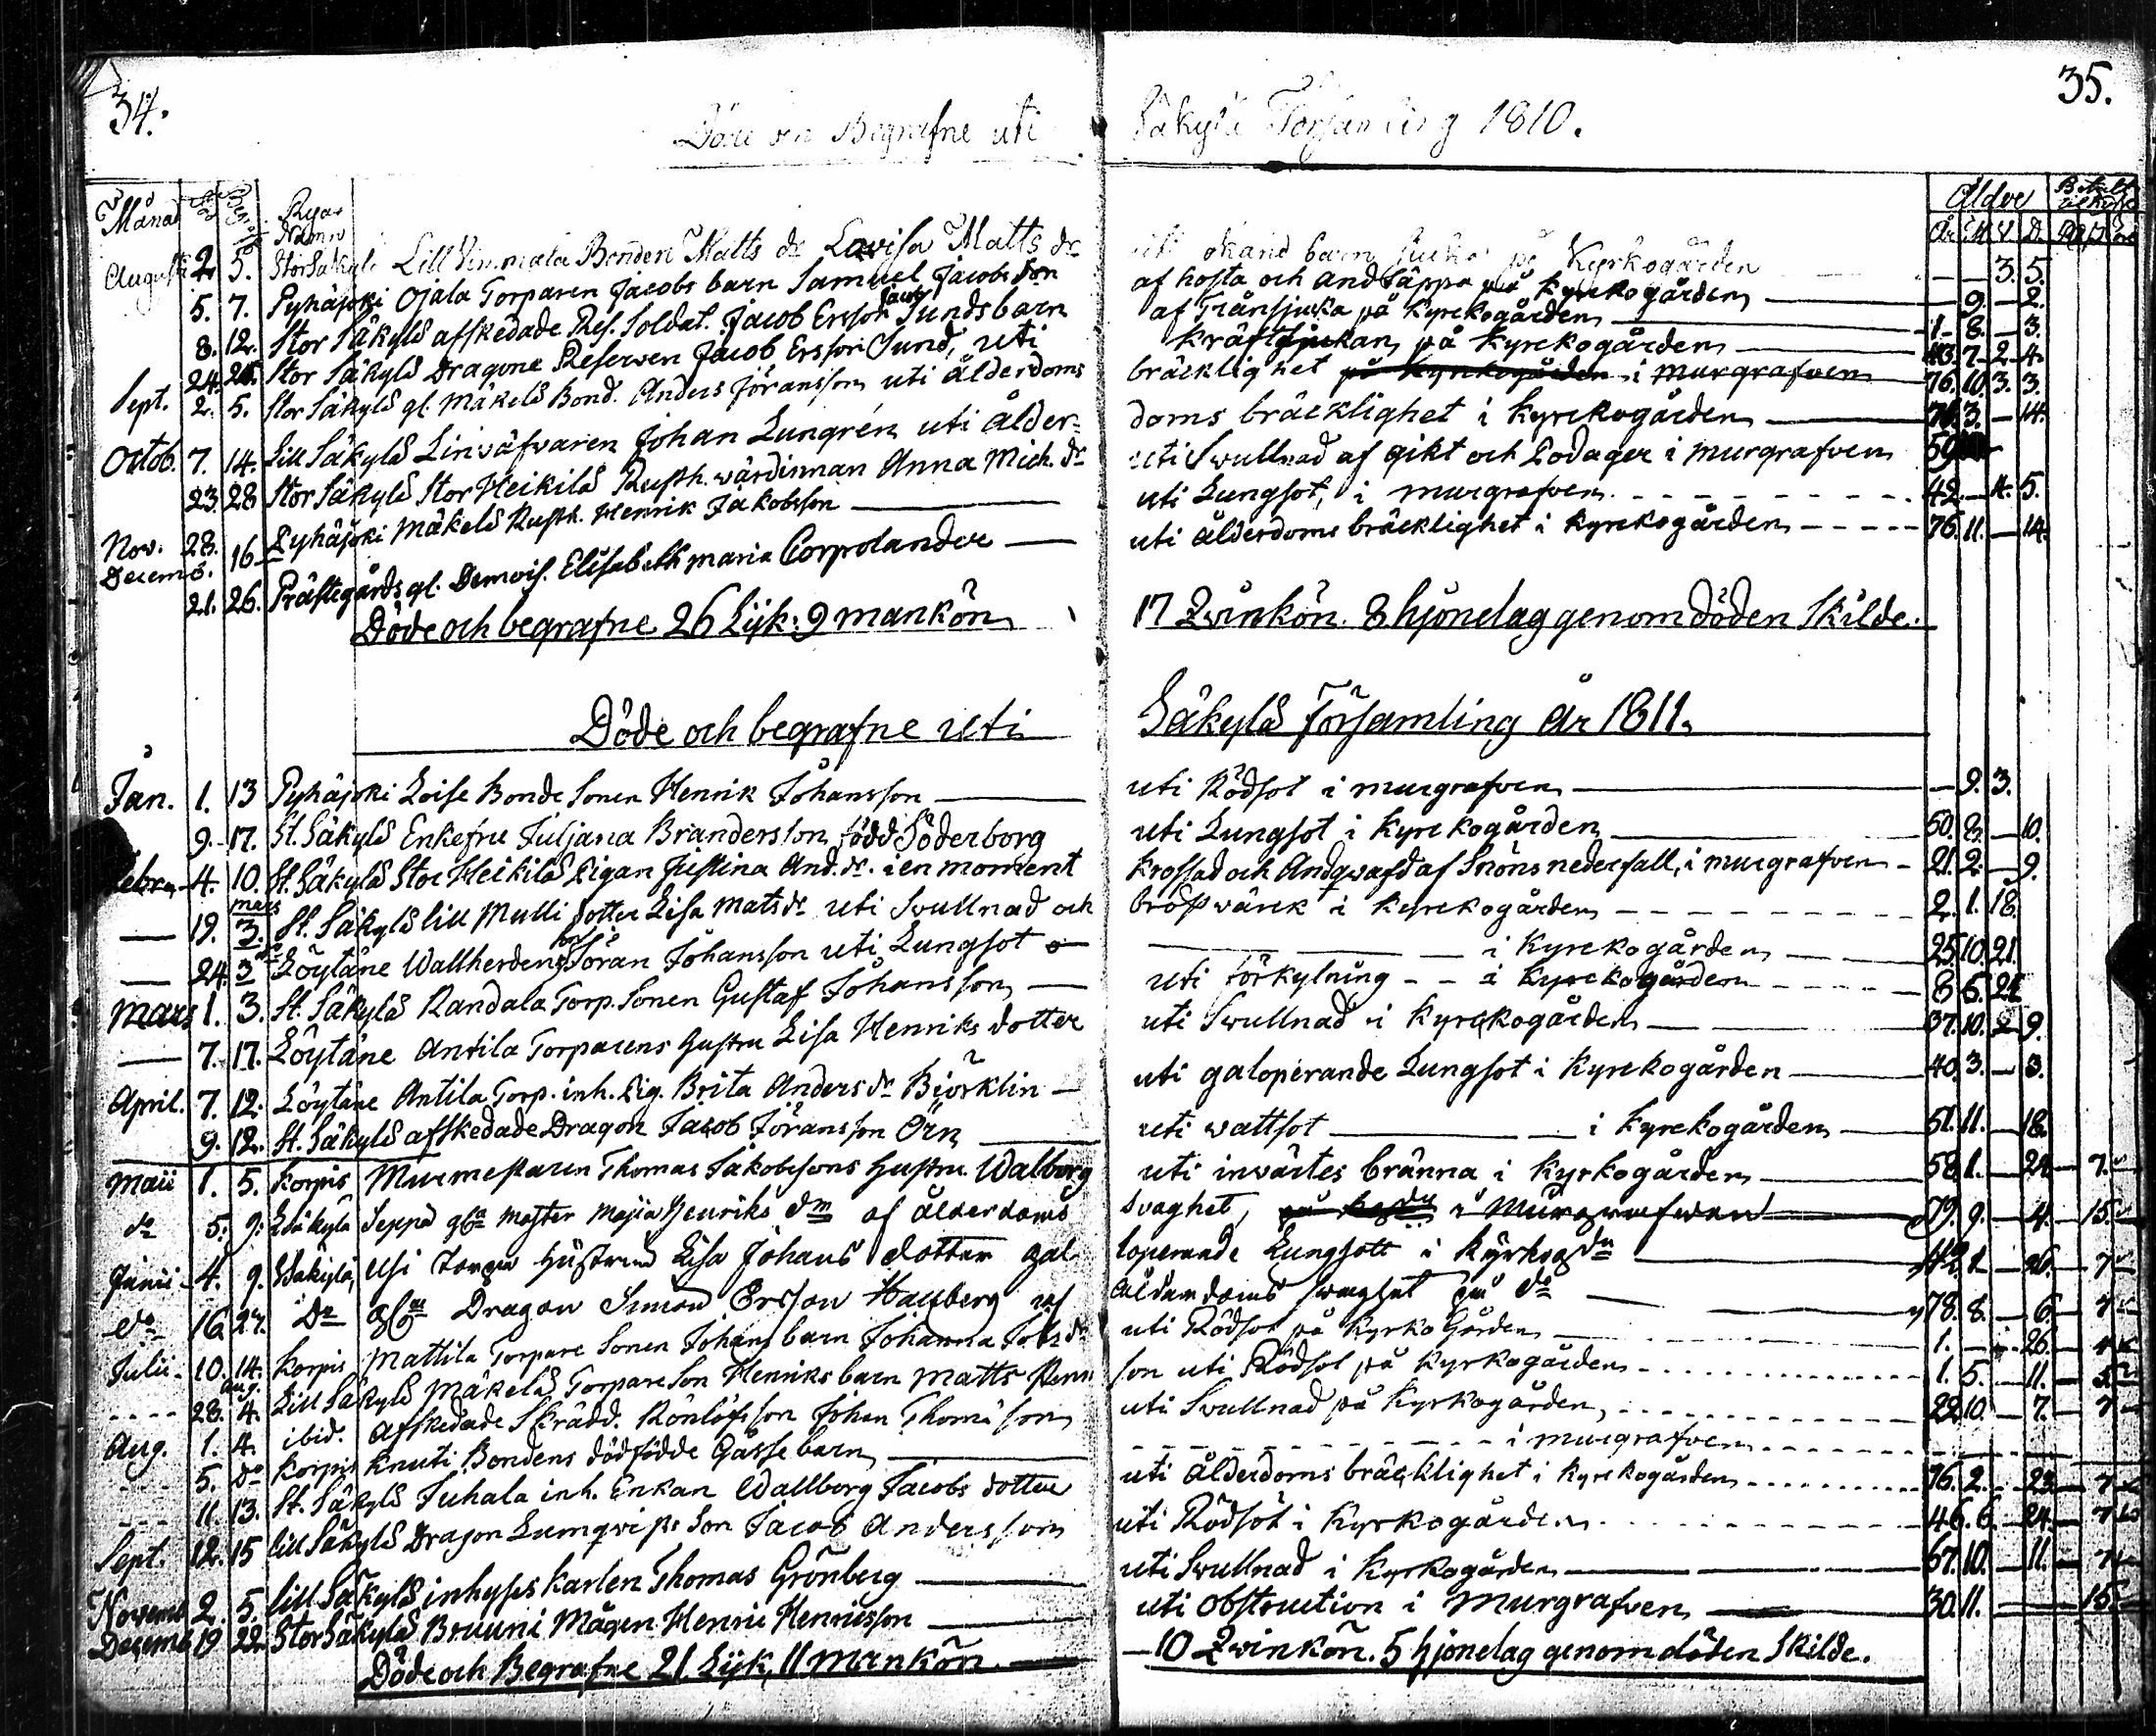 34.
35.
Döde och Begrafne uti Säkylä Församling 1810.
Månad Död Begr. Byar Namn Ålder
År M V. D.
Augusti 2. 5. Stor Säkylä Lill Vimmala Bonden Matts dr Lovisa Matts dr uti okänd barn på Kyrkogården — — 3. 5.
5. 7. Pyhäjoki Ojala Torparen Jacobs barn Samuel Jacobsson af hosta och andtäppa på Kyrkogården — 9. — 2.
8. 12. Stor Säkylä afskedade Res. Soldat. Jacob Ersson Sunds barn Jacob af Trånsjuka på Kyrckogården 1. 8. — 3.
24. Stor Säkylä Dragone Reserven Jacob Ersson Sund, uti kräftsjukan på Kyrckogården 43. 7. 2. 4.
Sept. 2. 5. Stor Säkylä gl. Mäkelä Bond. Anders Jöransson uti ålderdoms bräcklighet på Kyrckogården i murgrafven 76. 10. 3. 3.
Octob. 7. 14. Lill Säkylä Linväfvaren Johan Lungrén uti ålderdoms bräcklighet i Kyrckogården 3. — 14.
23. 28. Stor Säkylä Stor Heikilä Rusth. wärdinnan Anna Mich. dr uti Swullnad af gikt och Podager i murgrafven 59
Nov. 28. Pyhäjoki Mäkelä Rusth. Henrik Jakobsson uti Lungsot, i murgrafven 42. — 5.
Decemb. 16
21. 26. Prästegårds gl. Demois. Elisabeth Maria Corpolander uti ålderdoms bräcklighet i Kyrckogården 76. 11. — 14.
Döde och begrafne 26 Lijk: 9 mankön 17 Qvinkön. 8 hjonelag genom döden Skilde.
Döde och begrafne uti Säkylä Församling År 1811.
Jan. 1. 13 Pyhäjoki Loise Bonde Sonen Henrik Johansson uti Rödsot i murgrafven — 9. 3.
9. 17. St. Säkylä Enkefru Juljana Brandersson född Söderborg uti Lungsot i Kyrckogården 50. 8. — 10.
Febru. 4. 10. St. Säkylä Stor Heikilä Pigan Justina And. dr. i en moment krossad och Andqvafd af Snöns nederfall, i murgrafven 21. 2. — 9.
— 19. Mars 3. St. Säkylä lill Mulli dotter Lisa Mats dr uti Swullnad och bröstvärck i Kyrckogården 2. 1. 18.
— 24. 3 Löytäne Wallherdens son Jöran Johansson uti Lungsot i Kyrckogården 25. 10. 21.
Mars 1. 3. St. Säkylä Randala Torp. Sonen Gustaf Johansson uti förkylning i Kyrckogården 8 6. 21.
— 7. 17. Löytäne Antila Torparens hustru Lisa Henriks dotter uti Swullnad i Kyrckogården 37. 10. 2 9.
April. 7. 12. Löytäne Antila Torp. inh. Pig. Brita Anders dr Biörklin uti galoperande Lungsot i Kyrckogården 40. 3. — 3.
9. 12. St. Säkylä afskedade Dragon Jacob Jöransson Örn uti wattsot i Kyrckogården 51. 11. — 18.
Maii 1. 5. Korpis Murmestaren Thomas Jakobssons hustru Walborg uti invärtes bränna i Kyrkogården 58 1. — 24 — 7.
do 5. 9. L Säkylä Seppä gla Moster Majia Henriks dtr af ålderdoms svaghet, i Murgrafwen 79. 9. — 4. — 15.
Junii 4. 9. Säkylä, Usi Torpar Hustrun Lisa Johans dotter galoperande Lungsott i Kyrkogdn 42. 1 — 26. — 7
do 16. 27. Do gl. Dragon Simon Ersson Hauberg af ålderdoms swaghet på do 78. 8. — 6. — 7
Julii 10. 14. Korpis Mattila Torpare Sonen Johans barn Johanna Johs dr uti Rödsot på Kyrko Gården 1. — 26.
28. Aug. 4. Lill Säkylä Mäkelä Torpare Son Henriks barn Matts Henrisson uti Rödsot på Kyrkogården 1. 5. — 11. —
Aug. 1. 4. ibid. Afskedade Skrädd. Rönlöfs son Johan Thomasson uti Swullnad på Kyrkogården 22. 10. — 7. — 7
5. do Korpis Knuti Bondens dödfödde Gåsse barn i murgrafven
11. 13. St. Säkylä Juhala inh. Enkan Wallborg Jacobs dotter uti Ålderdoms bräcklighet i Kyrckogården 76. 2. — 23. — 7
Sept. 12. 15 Lill Säkylä Dragon Lumqvists Son Jacob Andersson uti Rödsot i Kyrkogården 46. 6. — 24. — 7
Novemb 2. 5. Lill Säkylä inhyses Karlen Thomas Grönberg uti Swullnad i Kyrkogården 67. 10. — 11. — 7
Decemb 19 22 Stor Säkylä Bruuni Mågen Henric Henricsson uti obstruction i Murgrafven 30. 11. — 15
Döde och Begrafne 21 Lijk, 11 mankön. — 10 Qvinkön. 5 hjonelag genom döden Skilde.